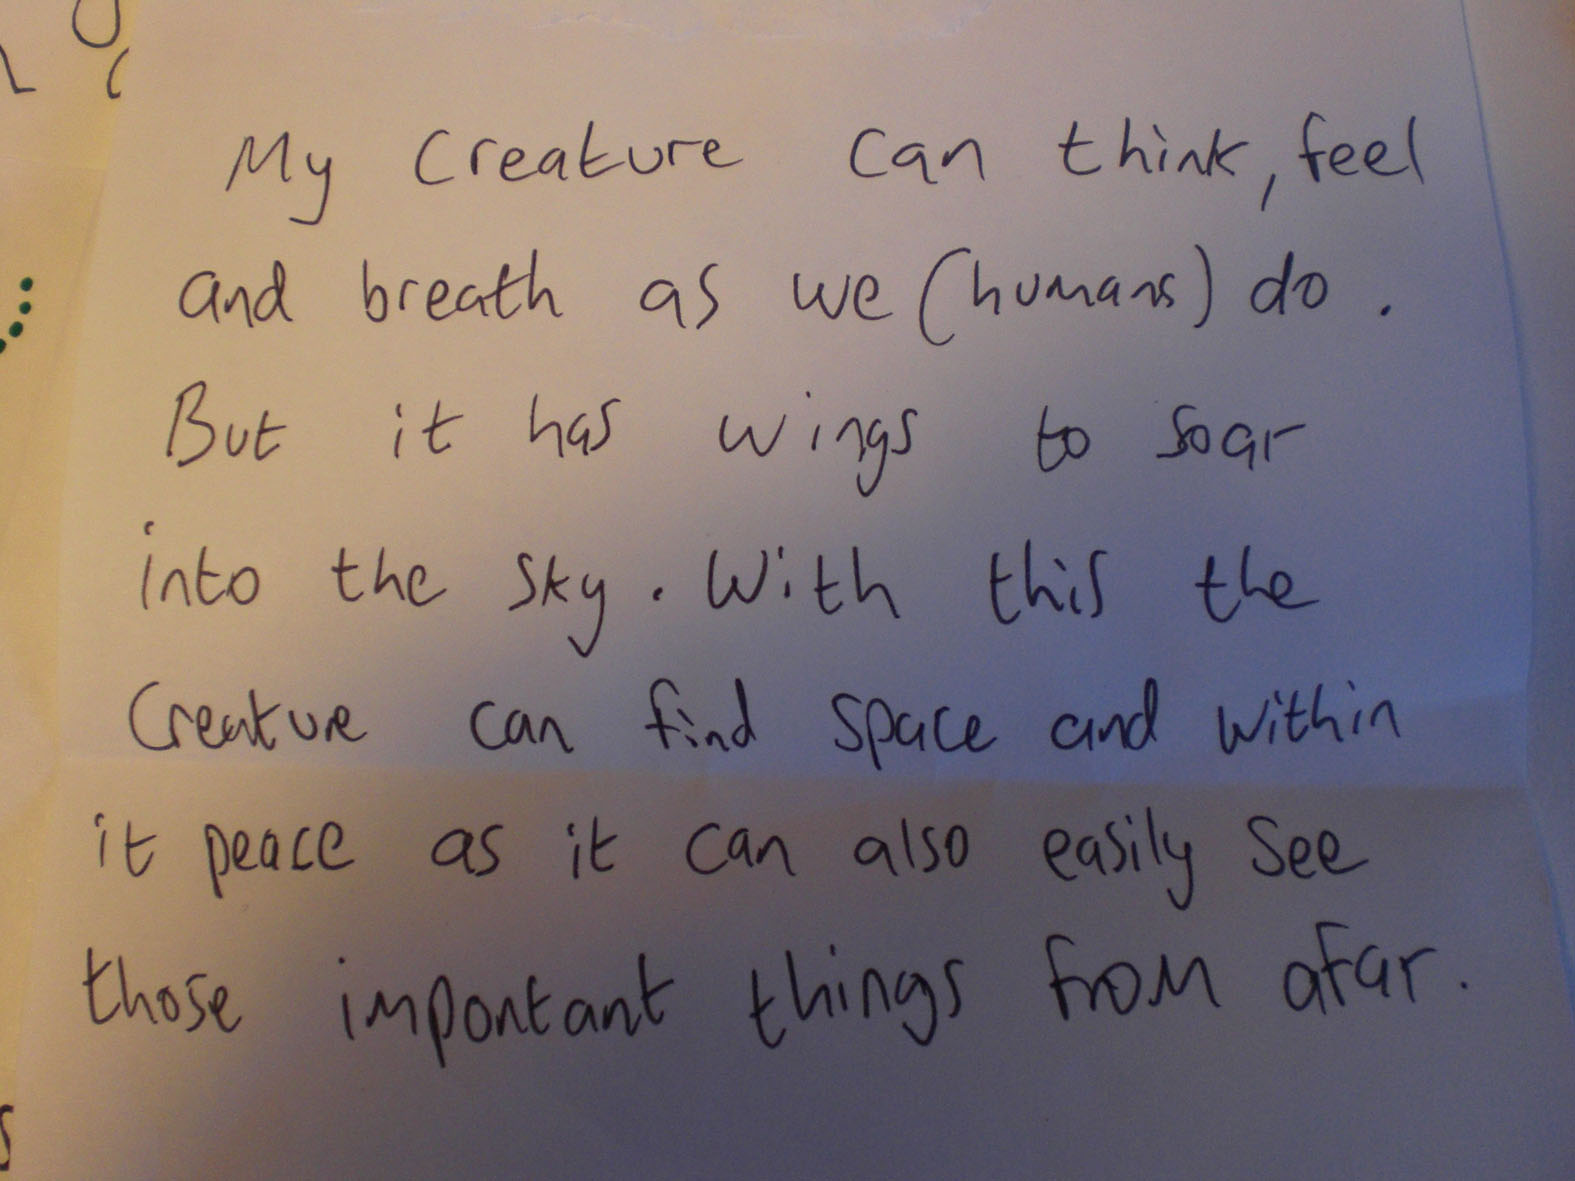 My Creature can think, feel
and breath as we (humans) do.
But it has wings to soar
into the sky. With this the
Creature can find space and within
it peace as it can also easily see
those important things from afar.